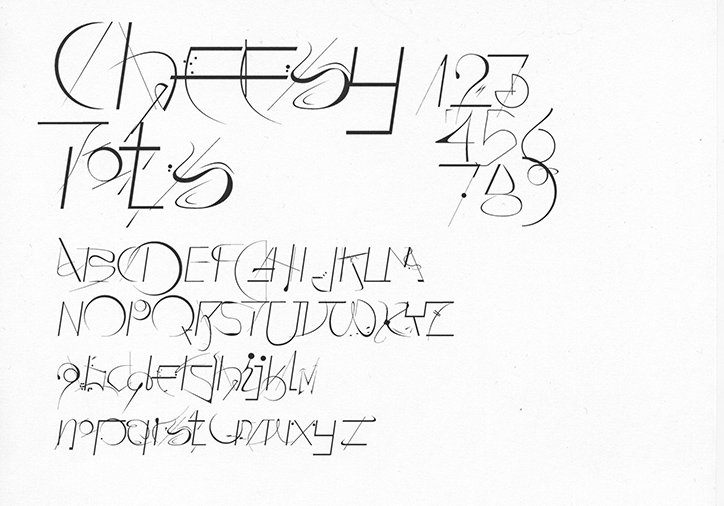 Cheesy
Tots
123
456
789
ABCDEFGHIJKLM
NOPQRSTUVWXYZ
abcdefghijklm
nopqrstuvwxyz